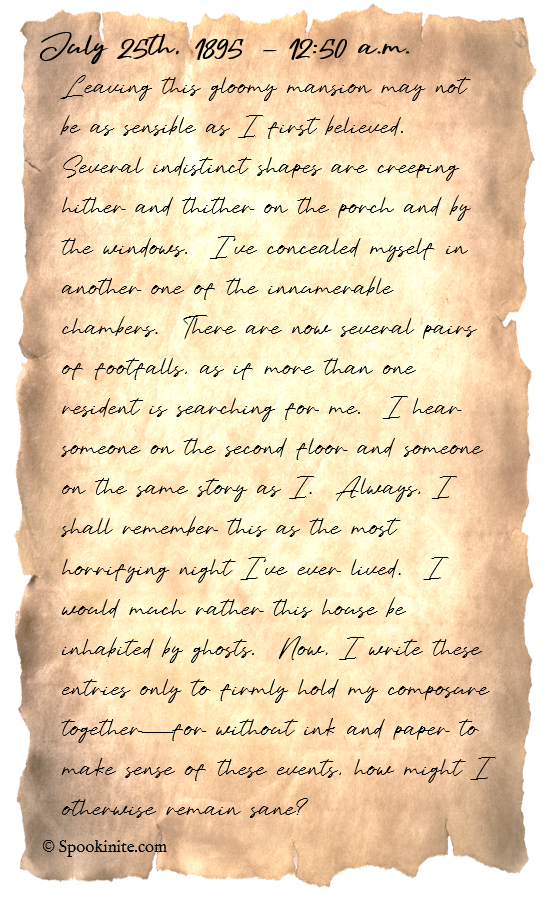 July 25th, 1895 – 12:50 a.m.
Leaving this gloomy mansion may not
be as sensible as I first believed.
Several indistinct shapes are creeping
hither and thither on the porch and by
the windows. I've concealed myself in
another one of the innumerable
chambers. There are now several pairs
of footfalls, as if more than one
resident is searching for me. I hear
someone on the second floor and someone
on the same story as I. Always, I
shall remember this as the most
horrifying night I've ever lived. I
would much rather this house be
inhabited by ghosts. Now, I write these
entries only to firmly hold my composure
together—for without ink and paper to
make sense of these events, how might I
otherwise remain sane?
© Spookinite.com